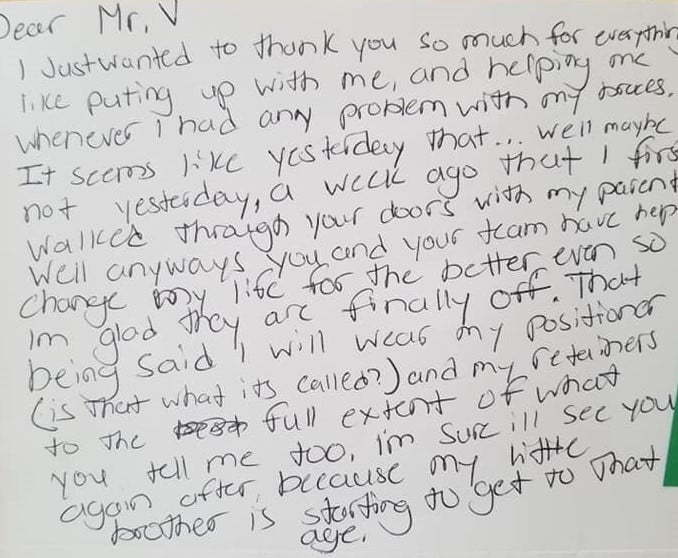 Dear Mr. V
I Just wanted to thank you so much for everythin
like puting up with me, and helping me
whenever I had any problem with my braces.
It seems like yesterday that... well maybe
not yesterday, a week ago that I firs
walked through your doors with my parent
Well anyways you and your team have help
change my life for the better even so
Im glad they are finally off. That
being said I will wear my positioner
(is that what its called?) and my retainers
to the full extent of what
you tell me too, I'm sure ill see you
again after, because my little
brother is starting to get to that
age.